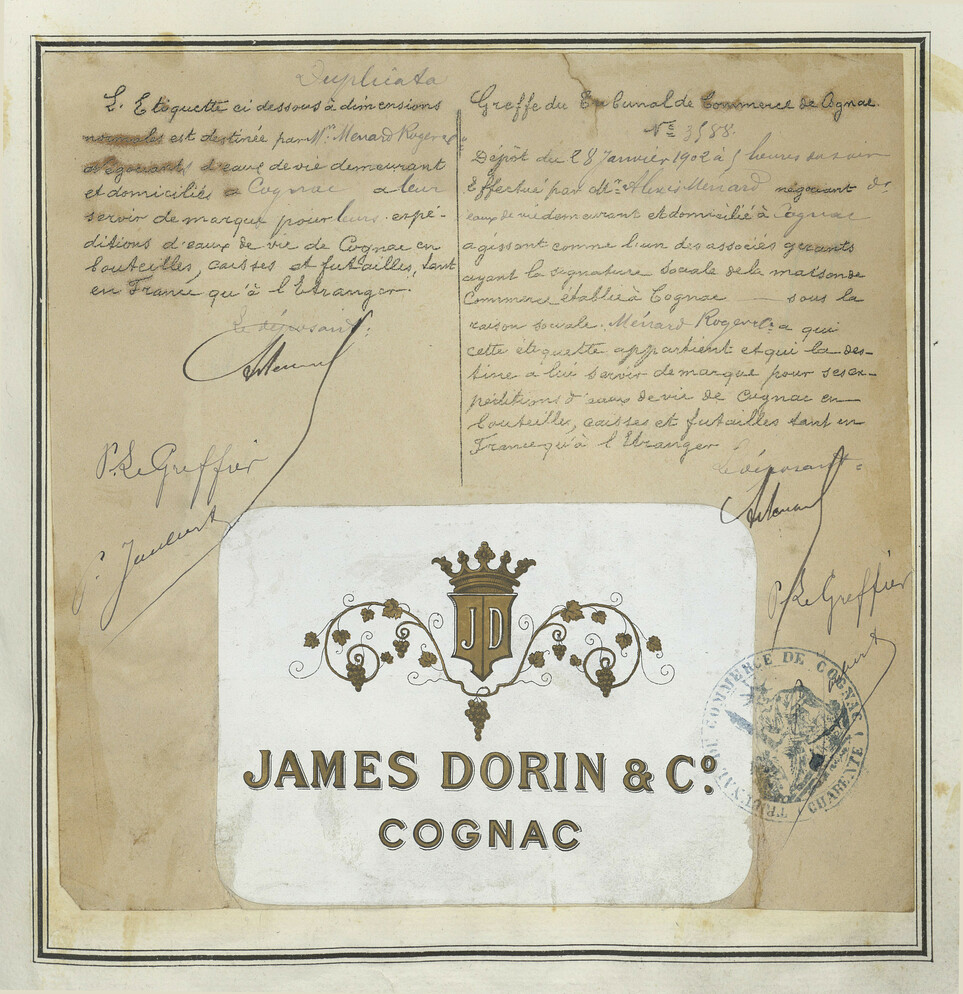 Duplicata
L'Etiquette ci dessous à dimensions
normales est destinée par Mrs Menard Roger & Cie
négociants d'eaux de vie demeurant
et domiciliés à Cognac a leur
servir de marque pour leurs expé-
ditions d'eaux de vie de Cognac en
bouteilles, caisses et futailles, tant
en France qu'à l'Etranger.
Le déposant:
P. Le Greffier
Greffe du Tribunal de Commerce de Cognac.
No 3588.
Dépôt du 28 Janvier 1902 à 5 heures du soir
Effectué par Mr Alexis Ménard négociant d'
eaux de vie demeurant et domicilié à Cognac
agissant comme l'un des associés gérants
ayant la signature sociale de la maison de
Commerce établie à Cognac — sous la
raison sociale: Ménard Roger & Cie a qui
cette étiquette appartient et qui la des-
tine a lui servir de marque pour ses ex-
péditions d'eaux de vie de Cognac en
bouteilles, caisses et futailles tant en
France qu'à l'Etranger
Le déposant:
P. Le Greffier
JD
JAMES DORIN & Co.
COGNAC
TRIBUNAL DE COMMERCE DE COGNAC (CHARENTE)